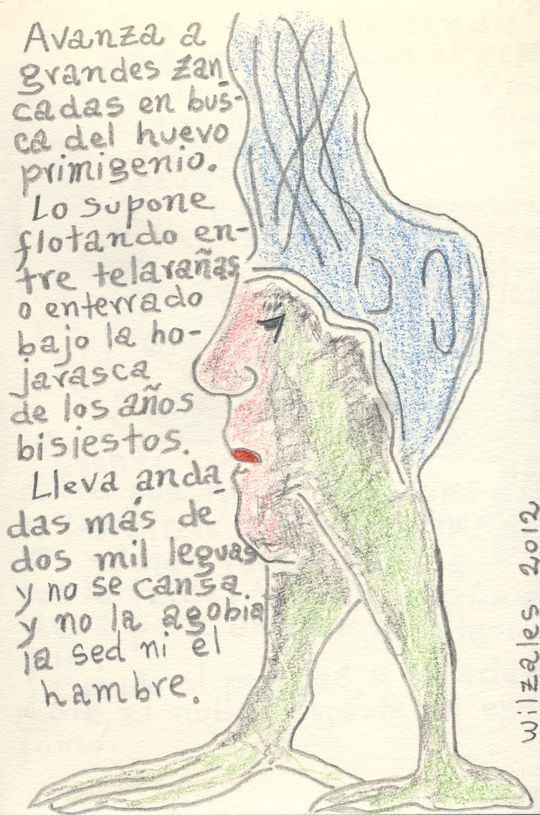 Avanza a
grandes zan_
cadas en bus-
ca del huevo
primigenio.
Lo supone
flotando en-
tre telarañas
o enterrado
bajo la ho-
jarasca
de los años
bisiestos.
Lleva anda_
das más de
dos mil leguas
y no se cansa
y no la agobia
la sed ni el
hambre.
wilzales 2012